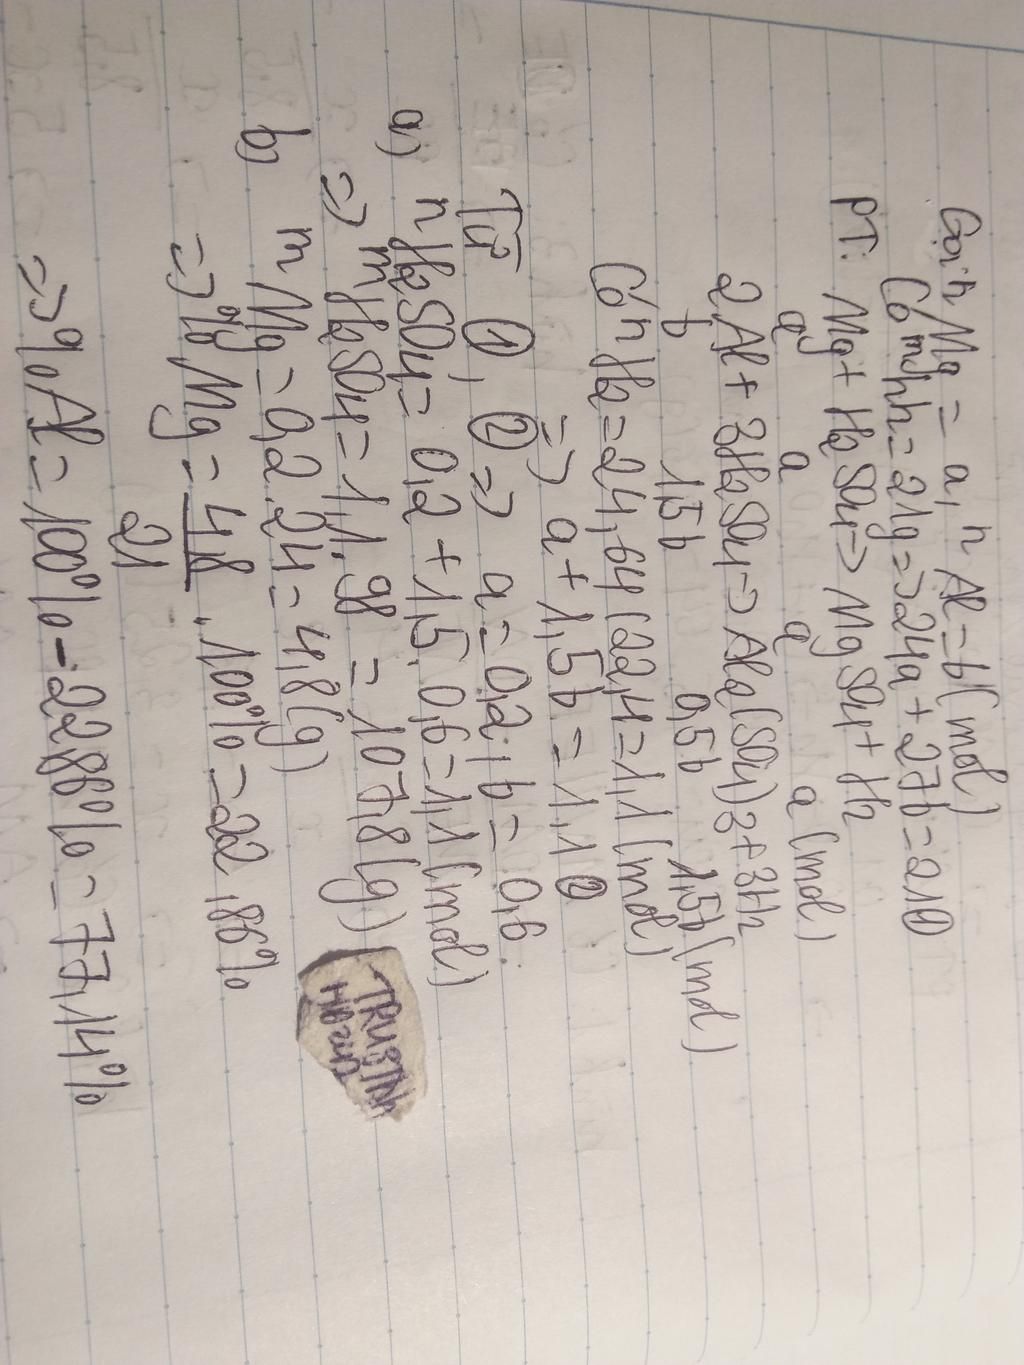 Gọi nMg = a, nAl = b (mol)
Có mhh = 21g => 24a + 27b = 21 ①
PT: Mg + H2SO4 -> MgSO4 + H2
a a a a (mol)
2Al + 3H2SO4 -> Al2(SO4)3 + 3H2
b 1,5b 0,5b 1,5b (mol)
Có nH2 = 24,64/22,4 = 1,1 (mol)
=> a + 1,5b = 1,1 ②
Từ ①, ② => a = 0,2; b = 0,6.
a) nH2SO4 = 0,2 + 1,5.0,6 = 1,1 (mol)
=> mH2SO4 = 1,1.98 = 107,8 (g)
b) mMg = 0,2.24 = 4,8 (g)
=> %Mg = 4,8/21 . 100% = 22,86%
=> %Al = 100% - 22,86% = 77,14%